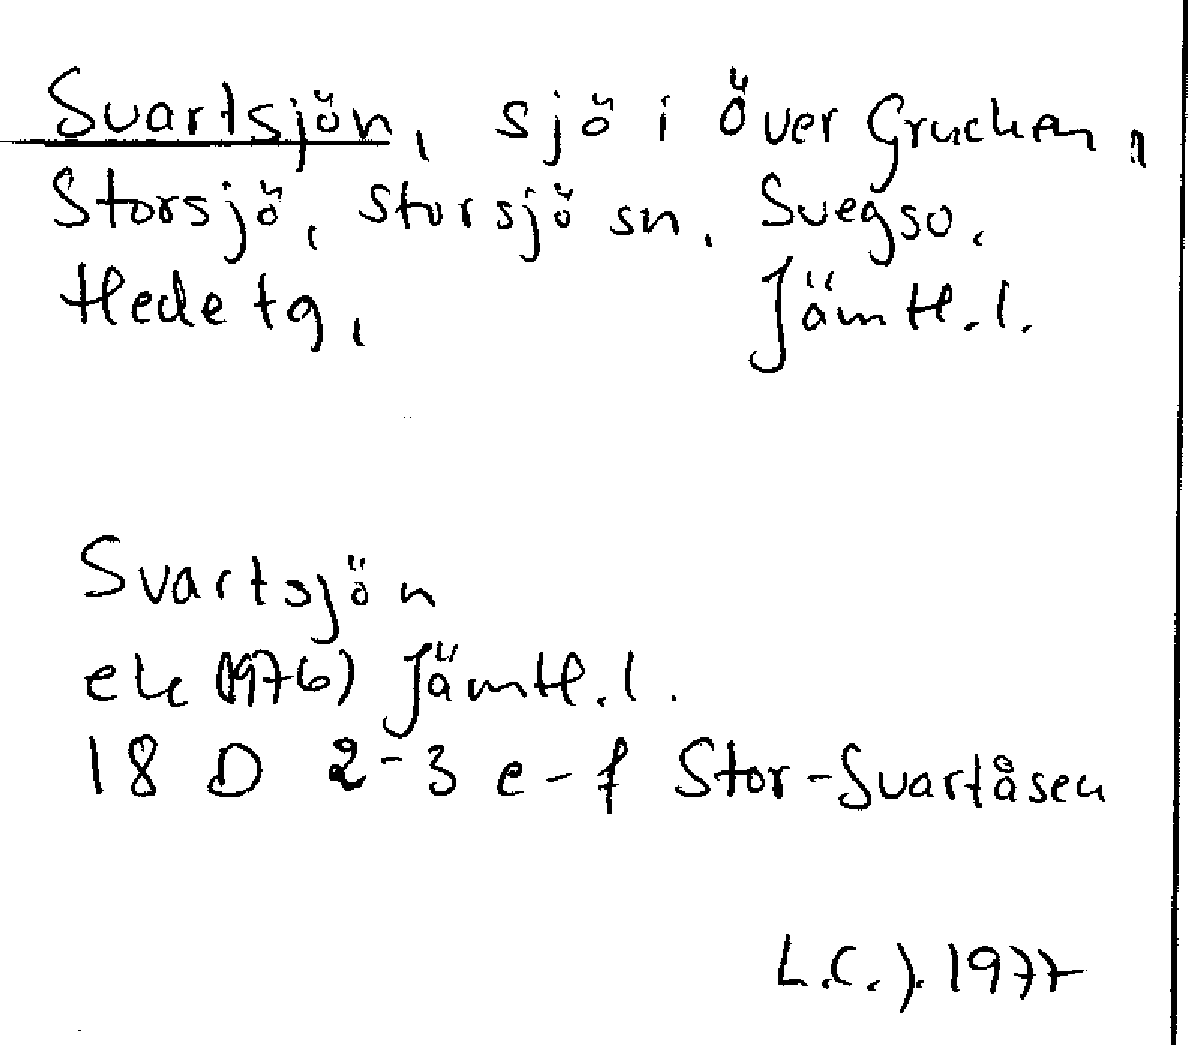 Svartsjön, sjö i Över Gruckan,
Storsjö, Storsjö sn, Svegso.
Hede tg, Jämtl. l.
Svartsjön
ek (1976) Jämtl. l.
18 D 2-3 e-f Stor-Svartåsen
L.C.J. 1977